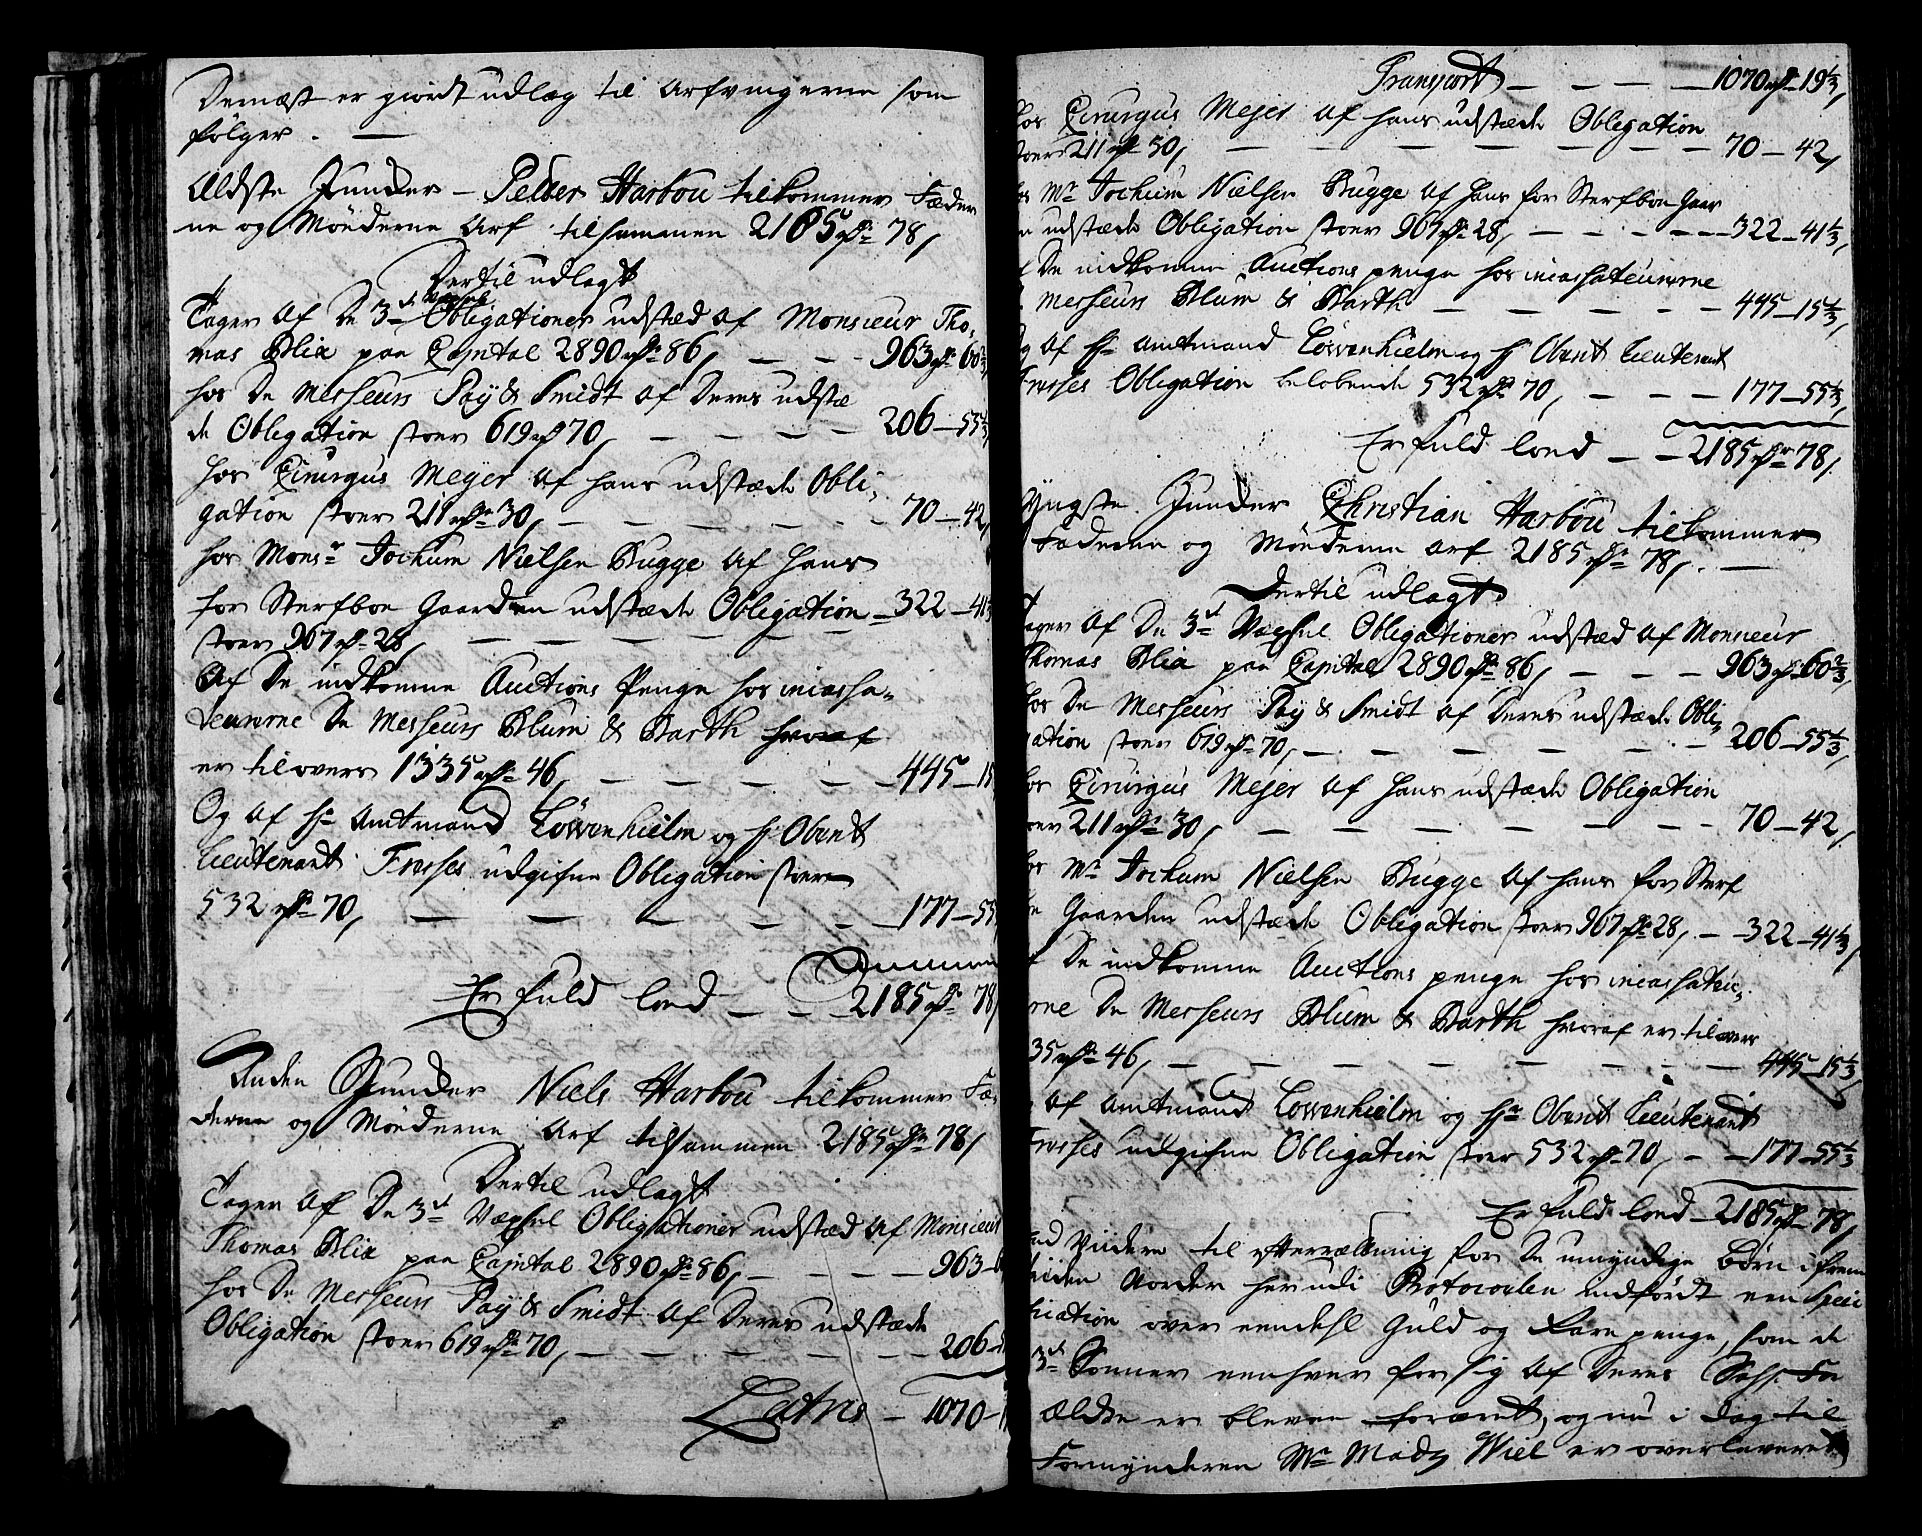 Dernæst er giordt udlæg til Arfvingerne som
følger. —
Ældste Junder - Peder Harbou tilkommer Fæder
ne og Møderne Arf tilsammen 2185 rd 78,
Dertil udlagt
Tager af De 3de Vexsel Obligationer udstæd af Monsieur Tho-
mas Blix paa Capital 2890 rd 86, — — — 963 rd 60 2/3
hos De Messeurs Pay & Smidt af Deres udstæ
de Obligation stoer 619 rd 70, — — — — 206 — 55 1/3
hos Cirurgus Meyer af hans udstæde Obli-
gation stoer 211 rd 30, — — — — — 70 — 42,
hos Monsr Jochum Nielsen Bugge af hans
for Sterfboe Gaarden udstæde Obligation — 322 — 41 1/3
stoer 967 rd 28, — — — — — —
Af De indkomne Auctions Penge hos incassa-
teurerne De Messeurs Blum & Barth hvoraf
er tilovers 1335 rd 46, — — — — — 445 — 15
Og af Hr Amtmand Løvenhielm og Hr Obrist
Lieutenant Frosses udgifne Obligation stoer
532 rd 70, — — — — — — 177 — 55
Summa
Er fuld lond — — — 2185 rd 78,
Anden Junder Niels Harbou tilkommer Fæ-
derne og Møderne Arf tilsammen 2185 rd 78,
Dertil udlagt
Tager af De 3de Vexsel Obligationer udstæd af Monsieur
Thomas Blix paa Capital 2890 rd 86, — — — 963 —
hos De Messeurs Pay & Smidt af Deres udstæde
Obligation stoer 619 rd 70, — — — — — 206 —
Lateris — 1070 —
Transport — — — — 1070 rd 19 1/3,
hos Cirurgus Mejer af hans udstæde Obligation
stoer 211 rd 50, — — — — — — — 70 — 42,
hos Mr Jochum Nielsen Bugge af hans for Sterfboe Gaar
udstæde Obligation stoer 967 rd 28, — — — — 322 — 41 1/3,
De indkomne Auctions penge hos incassateurerne
Messeurs Blum & Barth — — — — — — 445 — 15 1/3,
Og af Hr Amtmand Løvenhielm og Hr Obrist Lieutenant
Frosses Obligation beløbende 532 rd 70, — — — 177 — 55 1/3,
Er fuld lond — — 2185 rd 78,
Yngste Junder Christian Harbou tilkommer
Fæderne og Møderne Arf 2185 rd 78,. —
Dertil udlagt
Tager af De 3de Vexsel Obligationer udstæd af Monsieur
Thomas Blix paa Capital 2890 rd 86, — — — 963 rd 60 2/3,
hos De Messeurs Pay & Smidt af Deres udstæde Obli-
gation stoer 619 rd 70, — — — — — — 206 — 55 1/3,
hos Cirurgus Mejer af hans udstæde Obligation
stoer 211 rd 30, — — — — — — — 70 — 42,
hos Mr Jochum Nielsen Bugge af hans for Sterf
Gaarden udstæde Obligation stoer 967 rd 28, — 322 — 41 1/3,
De indkomne Auctions penge hos incassateu-
rne De Messeurs Blum & Barth hvoraf er tilovers
35 rd 46, — — — — — — — — 445 — 15 1/3,
af Amtmand Løvenhielm og Hr Obrist Lieutenant
Frosses udgifne Obligation stoer 532 rd 70, — — 177 — 55 1/3
Er fuld lond — 2185 rd 78,
Videre til efterretning for De umyndige børn i frem
tiden vorder herudi Protocollen indført een Speci
fication over eendeel Guld og Rare penge, som de
3de Sønner eenhver for sig af Deres Sahl. For
ældre er bleven foræret, og nu i dag til
Formynderen Mr Madz Wiel er overleveret